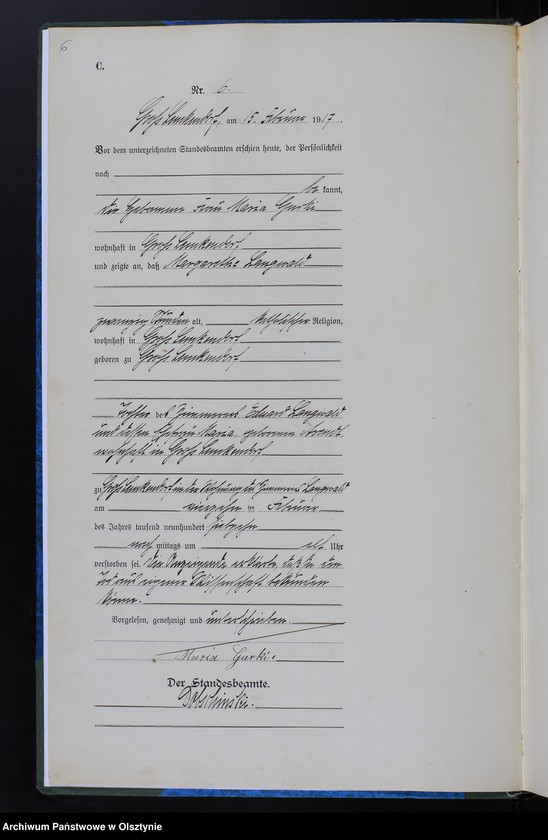 6
C.
Nr. 6.
Groß Lemkendorf, am 15. Februar 1917.
Vor dem unterzeichneten Standesbeamten erschien heute, der Persönlichkeit
nach
be kannt,
die Hebamme Frau Maria Gurki
wohnhaft in Groß Lemkendorf
und zeigte an, daß Margarethe Langwald
zwanzig Stunden alt, katholischer Religion,
wohnhaft in Groß Lemkendorf
geboren zu Groß Lemkendorf
Tochter des Zimmerers Eduard Langwald
und dessen Ehefrau Maria, geborenen Arendt,
wohnhaft in Groß Lemkendorf
zu Groß Lemkendorf in der Wohnung des Zimmerers Langwald
am vierzehn ten Februar
des Jahres tausend neunhundert siebzehn
nach mittags um elf Uhr
verstorben sei. Die Anzeigende erklärte, daß sie den
Tod aus eigener Wissenschaft bekunden
könne.
Vorgelesen, genehmigt und unterschrieben.
Maria Gurki.
Der Standesbeamte.
Archiwum Państwowe w Olsztynie